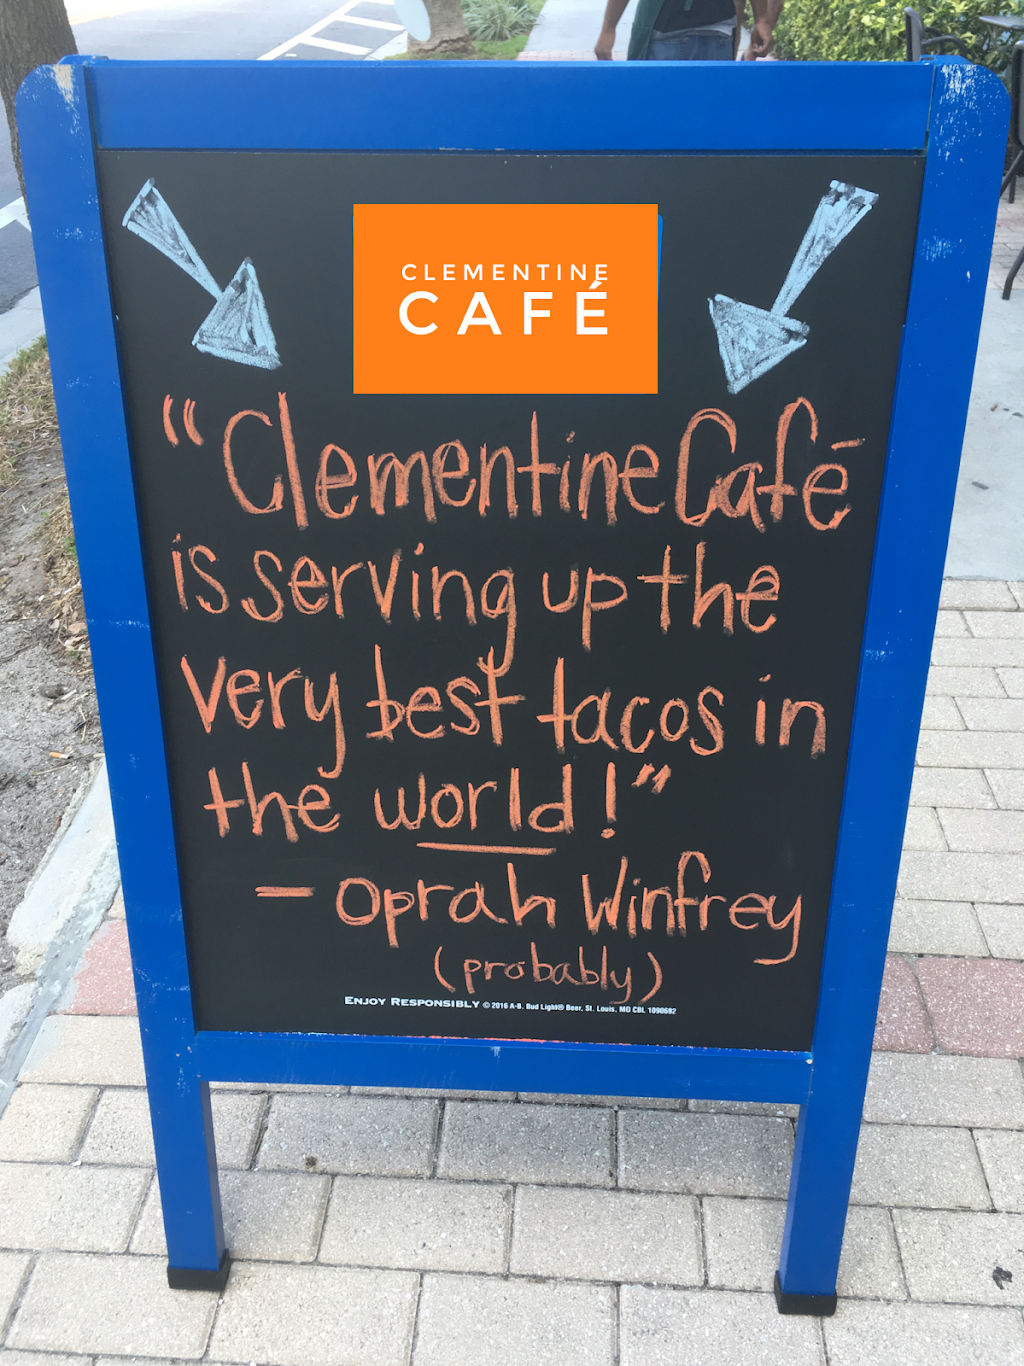 CLEMENTINE
CAFÉ
“Clementine Café
is serving up the
very best tacos in
the world!”
– Oprah Winfrey
(probably)
ENJOY RESPONSIBLY © 2016 A-B. Bud Light® Beer, St. Louis, MO CBL 1090692